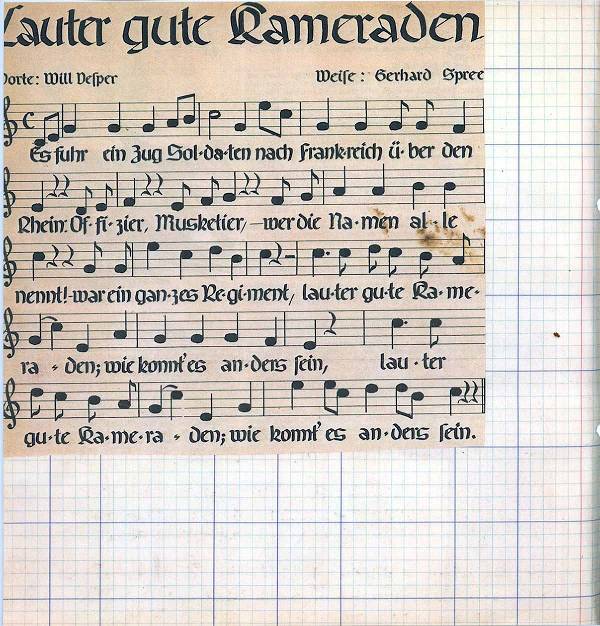 Lauter gute Kameraden
Worte: Will Vesper Weise: Gerhard Spree
Es fuhr ein Zug Sol-da-ten nach Frank-reich ü-ber den
Rhein: Of-fi-zier, Musketier, – wer die Na-men al-le
nennt!-war ein gan-zes Re-gi-ment, lau-ter gu-te Ka-me-
ra - den; wie konnt' es an-ders sein, lau-ter
gu-te Ka-me-ra - den; wie konnt' es an-ders sein.